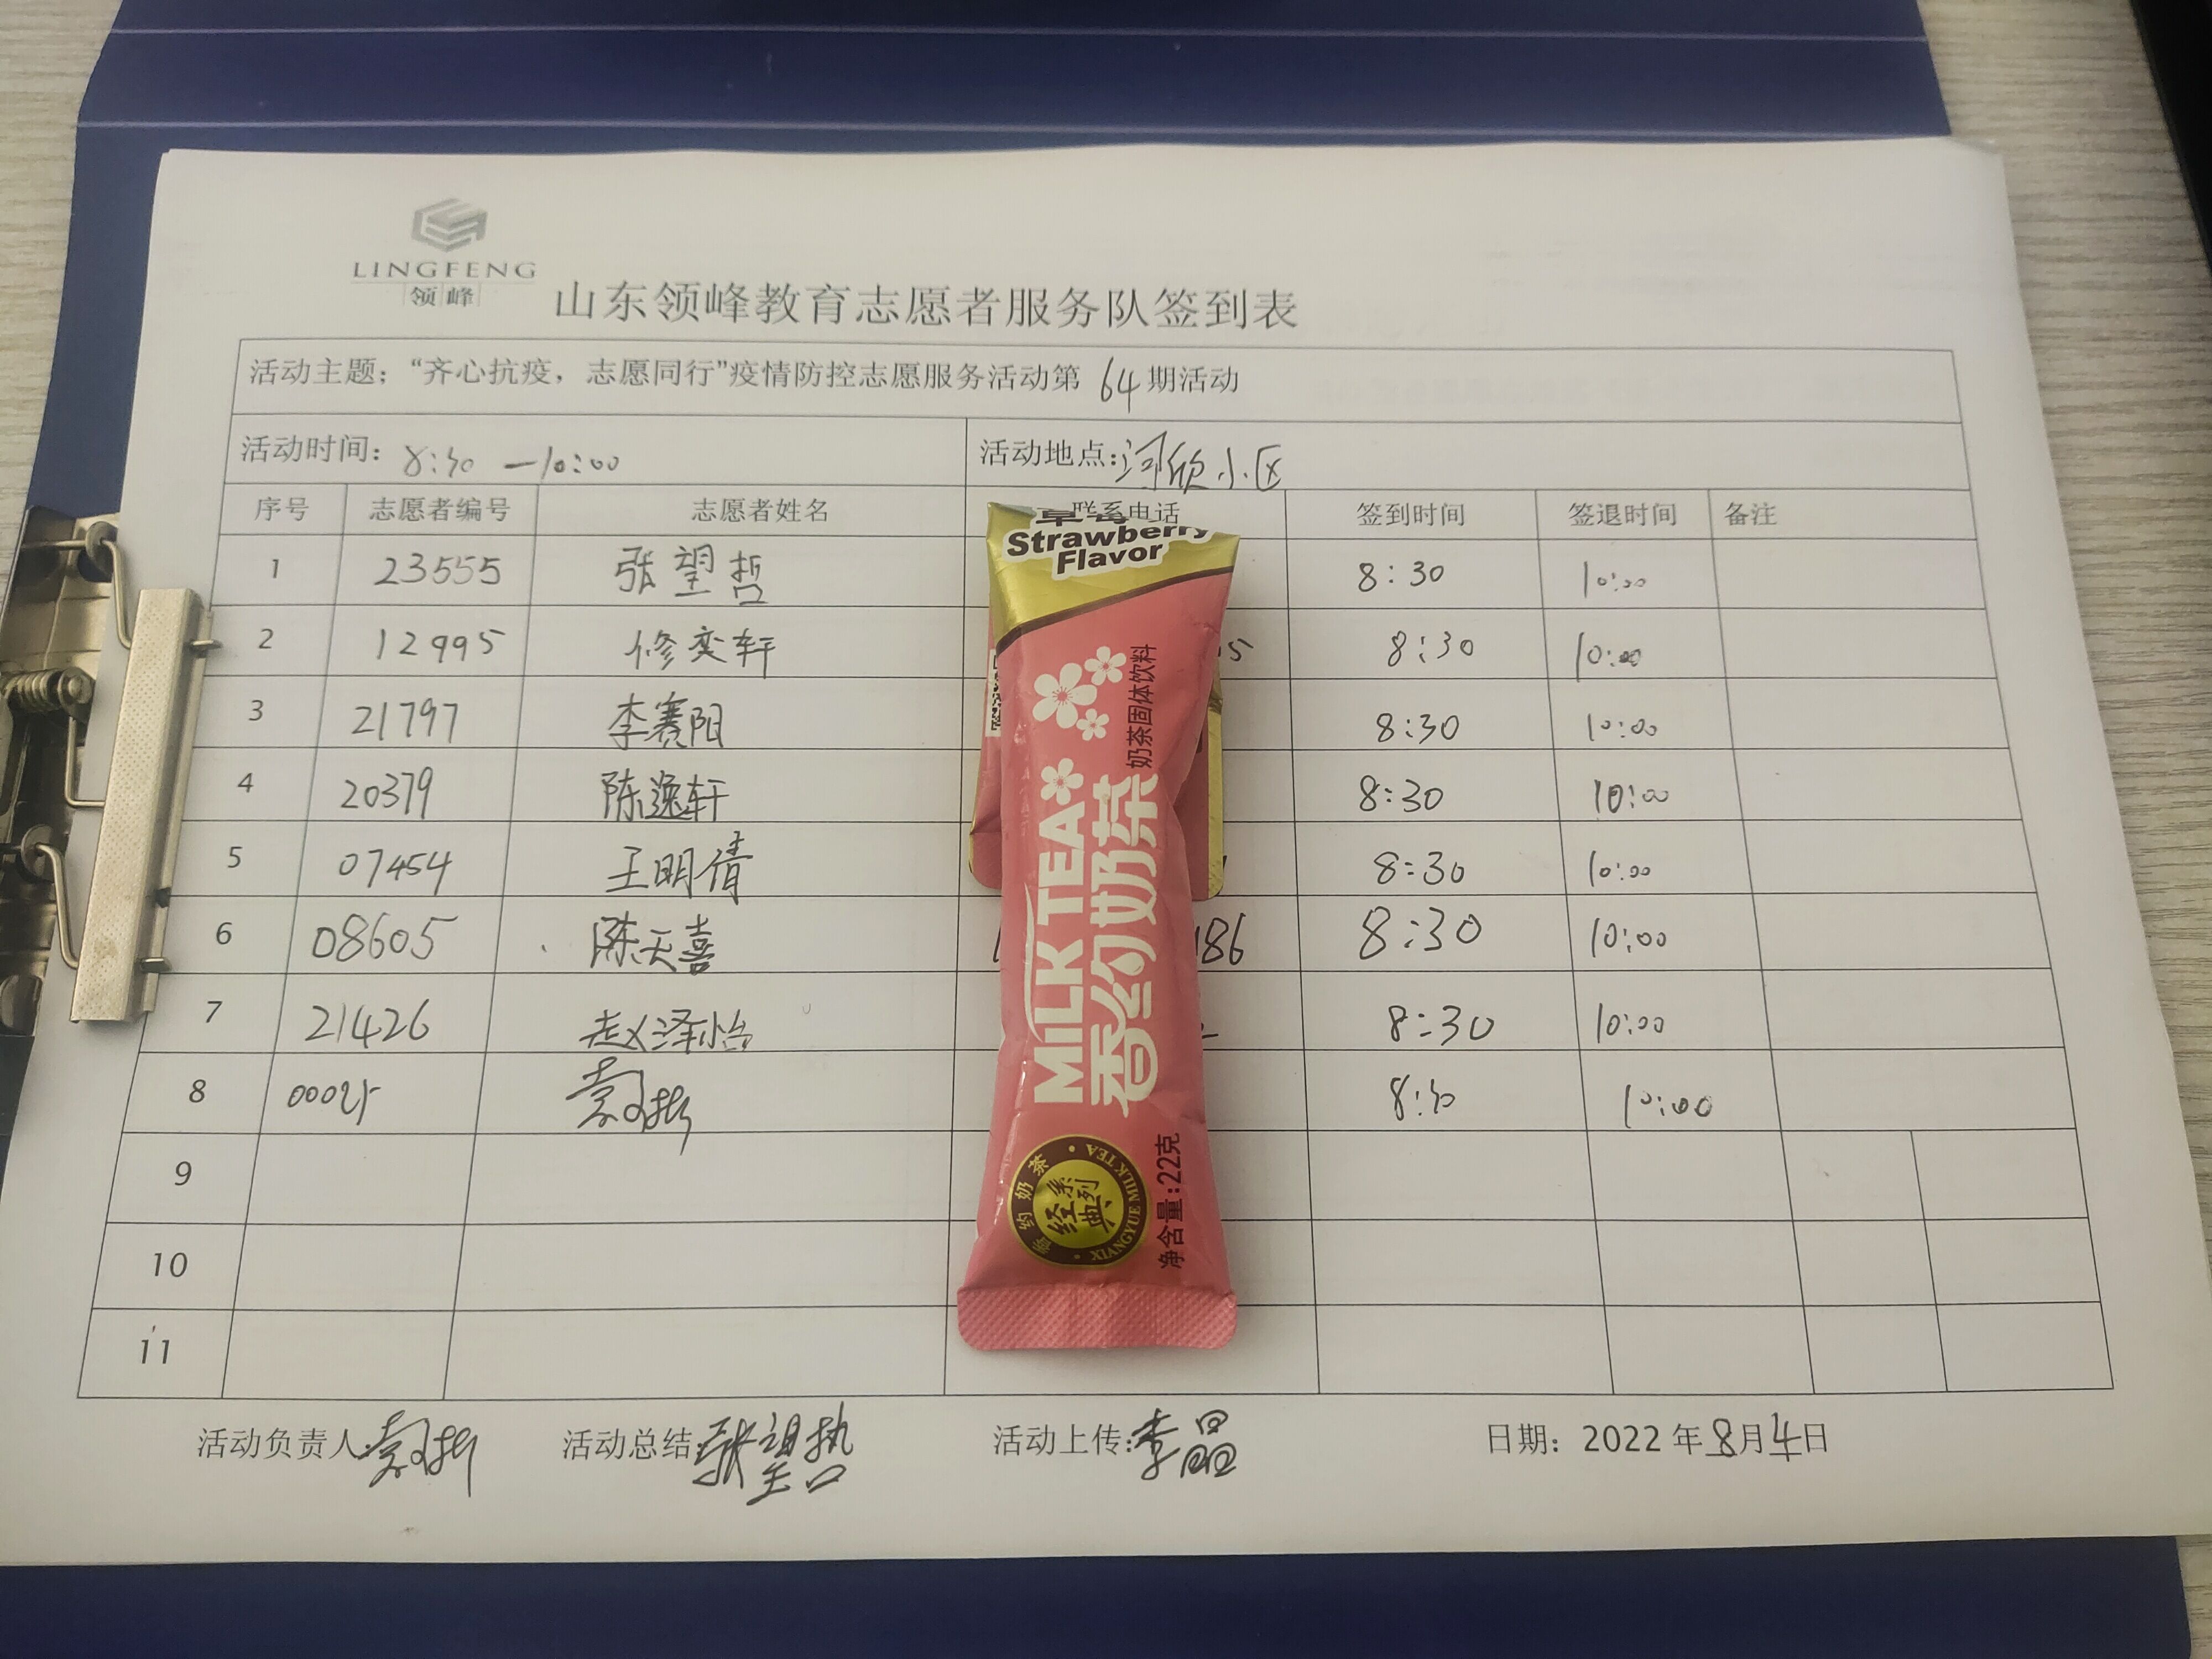 LINGFENG
领峰
山东领峰教育志愿者服务队签到表
活动主题；“齐心抗疫，志愿同行”疫情防控志愿服务活动第 64 期活动
活动时间：8:30 —10:00 活动地点:河欣小区
序号 志愿者编号 志愿者姓名 联系电话 签到时间 签退时间 备注
1 23555 张望哲 8:30 10:00
2 12995 修奕轩 5 8:30 10:00
3 21797 李赛阳 8:30 10:00
4 20379 陈逸轩 8:30 10:00
5 07454 王明倩 8:30 10:00
6 08605 陈天喜 186 8:30 10:00
7 21426 赵泽怡 8:30 10:00
8 8:30 10:00
9
10
11
活动负责人: 活动总结:张望哲 活动上传:李晶 日期：2022 年 8 月 4 日
Strawberry
Flavor
奶茶固体饮料
MiLK TEA
香约奶茶
香约奶茶 · XIANGYUE MILK TEA ·
经典系列
净含量:22克